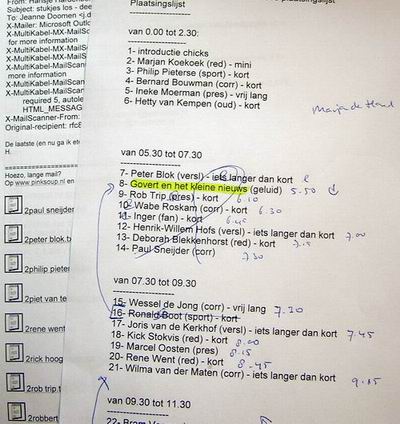 Plaatsingslijst
van 0.00 tot 2.30:
1- introductie chicks
2- Marjan Koekoek (red) - mini
3- Philip Pieterse (sport) - kort
4- Bernard Bouwman (corr) - kort
5- Ineke Moerman (pres) - vrij lang
6- Hetty van Kempen (oud) - kort
van 05.30 tot 07.30
7- Peter Blok (versl) - iets langer dan kort
8- Govert en het kleine nieuws (geluid) 5.50
9- Rob Trip (pres) - kort 6.10
10- Wabe Roskam (corr) - kort 6.30
11- Inger (fan) - kort 6.45
12- Henrik-Willem Hofs (versl) - iets langer dan kort 7.00
13- Deborah Blekkenhorst (red) - kort
14- Paul Sneijder (corr) 7.30
van 07.30 tot 09.30
15- Wessel de Jong (corr) - vrij lang 7.30
16- Ronald Boot (sport) - kort
17- Joris van de Kerkhof (versl) - iets langer dan kort 7.45
18- Kick Stokvis (red) - kort 8.00
19- Marcel Oosten (pres) 8.15
20- Rene Went (red) - kort 8.45
21- Wilma van der Maten (corr) - iets langer dan kort 9.15
van 09.30 tot 11.30
Subject: stukjes los - dee
To: Jeanne Doomen <j.d
X-Mailer: Microsoft Outlo
X-MultiKabel-MX-MailSc
for more information
X-MultiKabel-MailScan
X-MultiKabel-MX-MailSc
more information
X-MultiKabel-MailScan
required 5, autole
HTML_MESSAG
X-MailScanner-From:
Original-recipient: rfc8
De laatste (en nu ga ik et
H.
Hoezo, lange mail?
Op www.pinksoup.nl en
2paul sneijder
2peter blok.t
2philip pieter
2piet van te
2rene went
2rick hoog
2rob trip.t
2robbert